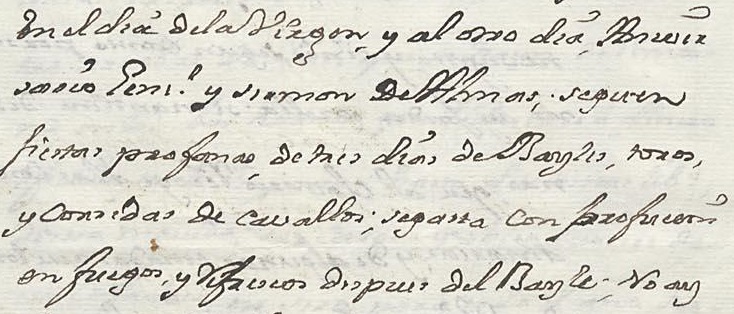 En el dia de la Virgen, y al otro dia, Aniver
sario Genl. y sermon de Almas; seguen
fiestas profanas, de tres dias de Bayles, toros,
y Corridas de cavallos; segasta con profucion
en fuegos, y refrescos despues del Bayle. No ay